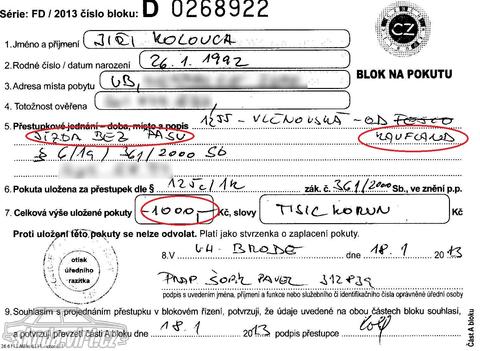 Série: FD / 2013 číslo bloku: D 0268922
1.Jméno a příjmení JIŘI KOLOUCA
2.Rodné číslo / datum narození 26.1.1992
3.Adresa místa pobytu UB,
BLOK NA POKUTU
CZ
4. Totožnost ověřena
5. Přestupkové jednání – doba, místo a popis 1255 - VLČNOVSKÁ - OD TESCO
JÍZDA BEZ PASU KAUFLAND
§ 6/1a) 361/2000 Sb
6. Pokuta uložena za přestupek dle § 125c/1k zák. č. 361/2000 Sb., ve znění p.p.
7. Celková výše uložené pokuty -1000,- Kč, slovy TISIC KORUN Kč
Proti uložení této pokuty se nelze odvolat. Platí jako stvrzenka o zaplacení pokuty.
otisk
úředního
razítka
8.V UH. BRODE dne 18.1 2013
PRAP ŠOPÍK PAVEL 312839
podpis s uvedením jména, příjmení a funkce nebo služebního či identifikačního čísla oprávněné úřední osoby
9. Souhlasím s projednáním přestupku v blokovém řízení, potvrzuji, že údaje uvedené na obou částech bloku souhlasí,
a potvrzuji převzetí části A bloku dne 18.1 2013 podpis
Část A bloku